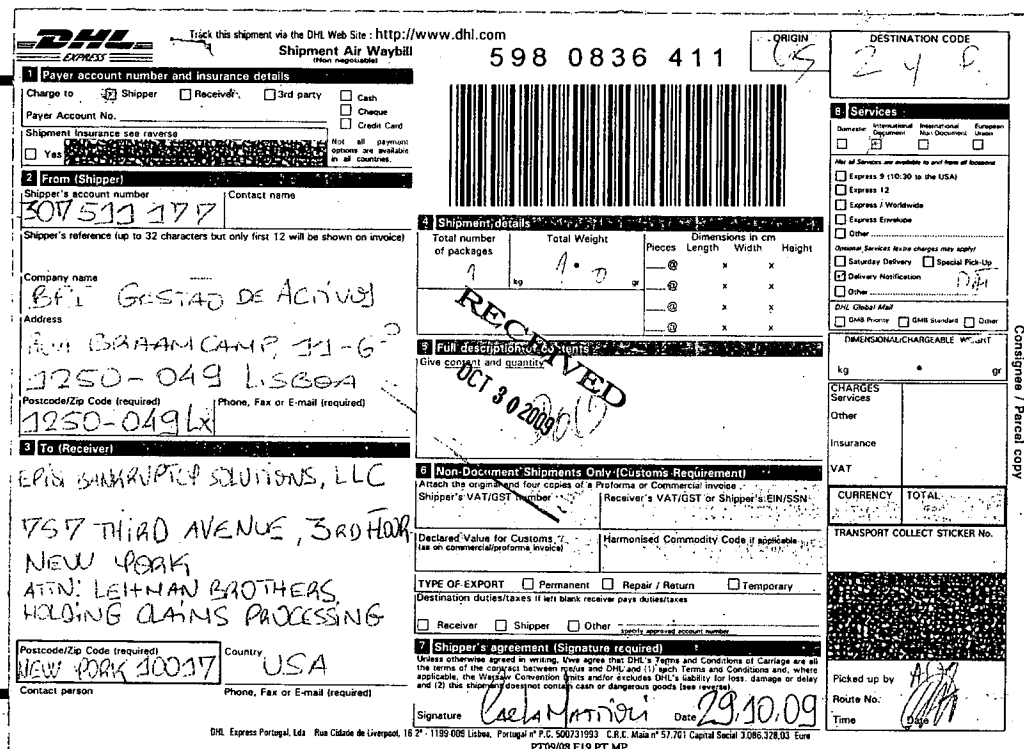 DHL
EXPRESS
Track this shipment via the DHL Web Site : http://www.dhl.com
Shipment Air Waybill
(Non negotiable)
598 0836 411
ORIGIN
DESTINATION CODE
1 Payer account number and insurance details
Charge to Shipper Receiver 3rd party
Cash
Cheque
Credit Card
Payer Account No.
Shipment Insurance see reverse
Yes
Not all payment options are available in all countries.
2 From (Shipper)
Shipper's account number
Contact name
307 511 177
Shipper's reference (up to 32 characters but only first 12 will be shown on invoice)
Company name
GESTAO DE ACTIVOS
Address
BRAAMCAMP, 11-6º
1250-049 LISBOA
Postcode/Zip Code (required)
Phone, Fax or E-mail (required)
1250-049 Lx
3 To (Receiver)
EPIQ BANKRUPTCY SOLUTIONS, LLC
757 THIRD AVENUE, 3RD FLOOR
NEW YORK
ATTN: LEHMAN BROTHERS
HOLDING CLAIMS PROCESSING
Postcode/Zip Code (required)
Country
NEW YORK 10017
USA
Contact person
Phone, Fax or E-mail (required)
4 Shipment details
Total number of packages
Total Weight
Dimensions in cm
Pieces Length Width Height
1
1.0
kg gr
@ x x
@ x x
@ x x
@ x x
RECEIVED
OCT 30 2009
5 Full description of contents
Give content and quantity
6 Non-Document Shipments Only (Customs Requirement)
Attach the original and four copies of a Proforma or Commercial invoice
Shipper's VAT/GST number
Receiver's VAT/GST or Shipper's EIN/SSN
Declared Value for Customs
(as on commercial/proforma invoice)
Harmonised Commodity Code if applicable
TYPE OF EXPORT Permanent Repair / Return Temporary
Destination duties/taxes If left blank receiver pays duties/taxes
Receiver Shipper Other
specify approved account number
7 Shipper's agreement (Signature required)
Unless otherwise agreed in writing, I/we agree that DHL's Terms and Conditions of Carriage are all
the terms of the contract between me/us and DHL and (1) such Terms and Conditions and, where
applicable, the Warsaw Convention limits and/or excludes DHL's liability for loss, damage or delay
and (2) this shipment does not contain cash or dangerous goods (see reverse).
Signature
Date 29.10.09
8 Services
Domestic
International Document
International Non Document
European Union
Not all Services are available to and from all locations
Express 9 (10:30 to the USA)
Express 12
Express / Worldwide
Express Envelope
Other
Optional Services (extra charges may apply)
Saturday Delivery Special Pick-Up
Delivery Notification
Other
DHL Global Mail
GMB Priority GMB Standard Other
DIMENSIONAL/CHARGEABLE WEIGHT
kg . gr
CHARGES
Services
Other
Insurance
VAT
CURRENCY TOTAL
TRANSPORT COLLECT STICKER No.
Picked up by
Route No.
Time Date
Consignee / Parcel copy
DHL Express Portugal, Lda Rua Cidade de Liverpool, 16 2º - 1199-009 Lisboa, Portugal nº P.C. 500731993 C.R.C. Maia nº 57.701 Capital Social 3.086.328,03 Euro
PT09/08 E19 PT MP